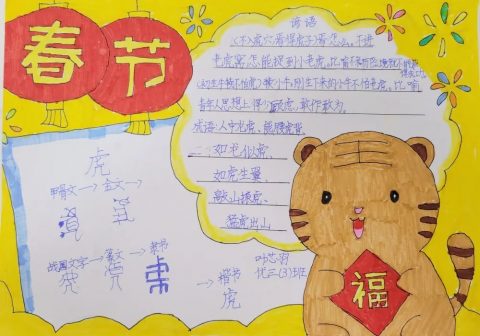 春节
谚语
不入虎穴,焉得虎子:看怎么,不进
老虎窝,怎能找到小老虎,比喻不
(初生牛犊不怕虎):犊:小牛,刚生下来的小牛不怕老虎,比喻
青年人思想上很少顾虑,敢作敢为。
成语:人中龙虎、熊腰虎背
二、如龙似虎、
如虎生翼、
敲山振虎、
猛虎出山
虎
甲骨文→金文→
战国文字→篆文→隶书
→楷书
虎
福
优三(3)班